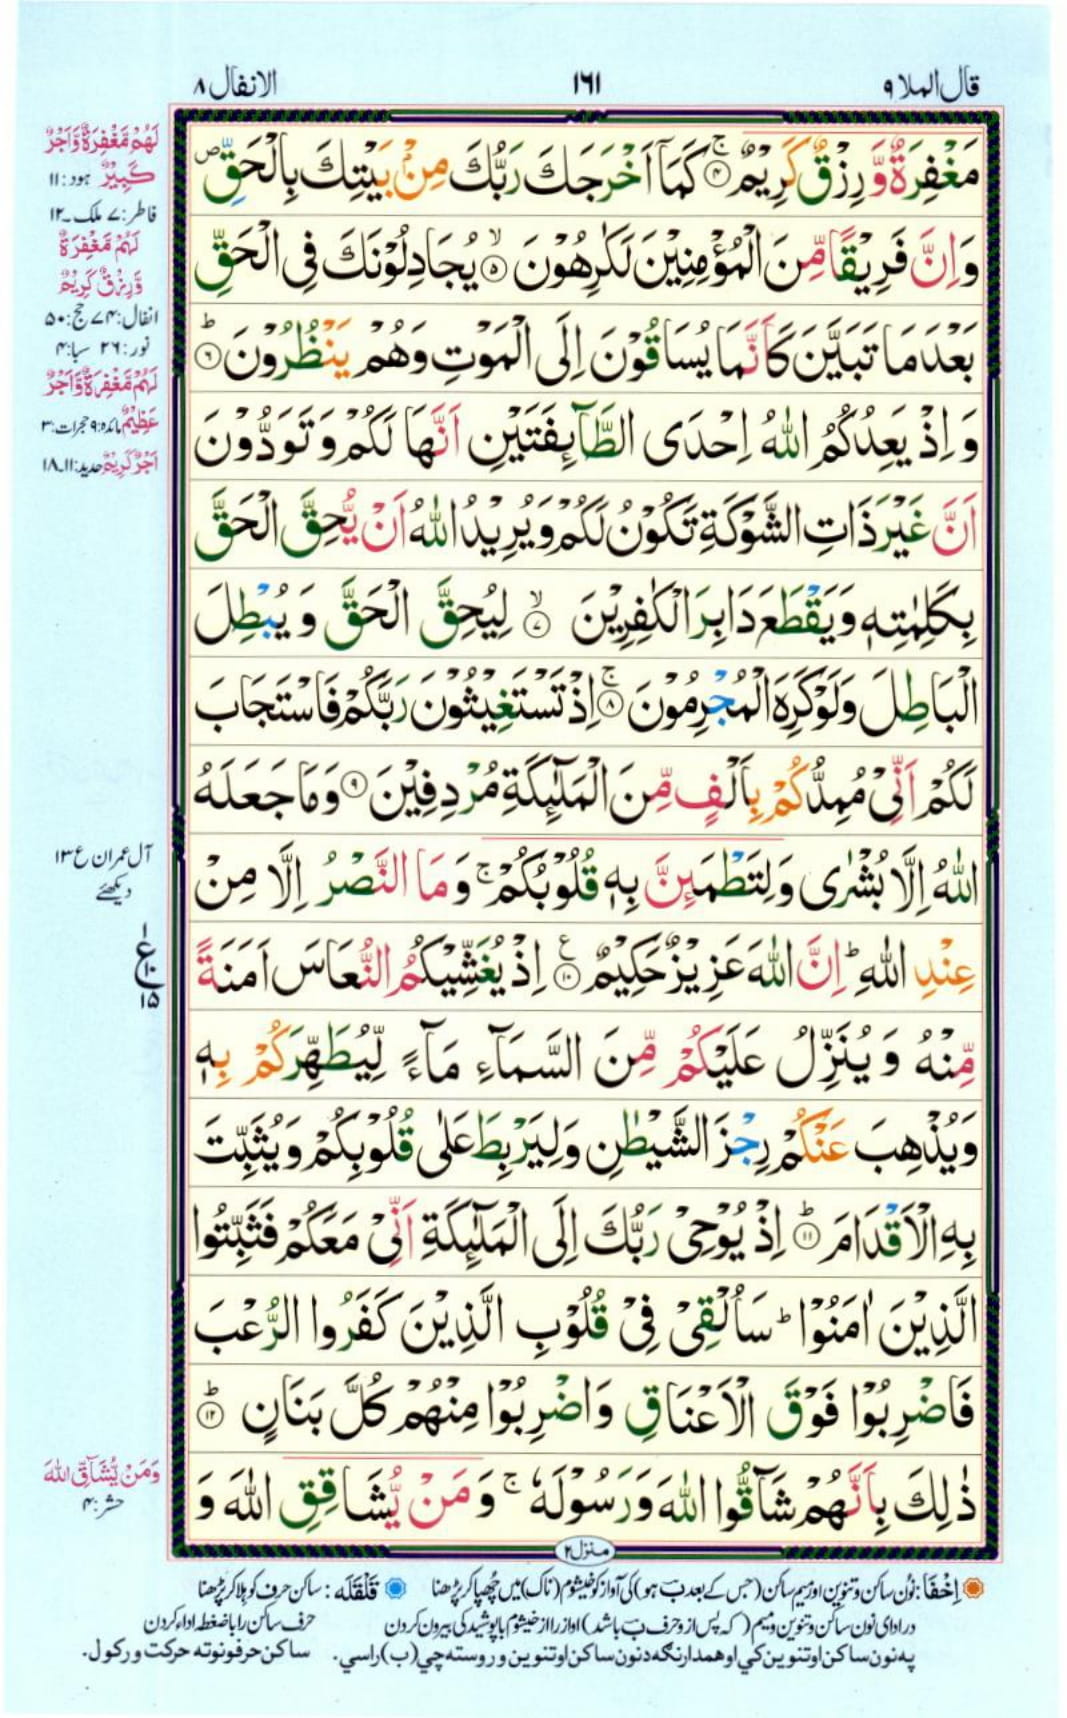 قال الملا ۹
۱۶۱
الانفال ۸
مَغْفِرَةٌ وَّرِزْقٌ كَرِيْمٌ ۚ۝۴ كَمَاۤ اَخْرَجَكَ رَبُّكَ مِنْۢ بَيْتِكَ بِالْحَقِّ ۪
وَاِنَّ فَرِيْقًا مِّنَ الْمُؤْمِنِيْنَ لَكٰرِهُوْنَ ۙ۝۵ يُجَادِلُوْنَكَ فِى الْحَقِّ
بَعْدَ مَا تَبَيَّنَ كَاَنَّمَا يُسَاقُوْنَ اِلَى الْمَوْتِ وَهُمْ يَنْظُرُوْنَ ؕ۝۶
وَاِذْ يَعِدُكُمُ اللّٰهُ اِحْدَى الطَّآئِفَتَيْنِ اَنَّهَا لَكُمْ وَتَوَدُّوْنَ
اَنَّ غَيْرَ ذَاتِ الشَّوْكَةِ تَكُوْنُ لَكُمْ وَيُرِيْدُ اللّٰهُ اَنْ يُّحِقَّ الْحَقَّ
بِكَلِمٰتِهٖ وَيَقْطَعَ دَابِرَ الْكٰفِرِيْنَ ۙ۝۷ لِيُحِقَّ الْحَقَّ وَيُبْطِلَ
الْبَاطِلَ وَلَوْ كَرِهَ الْمُجْرِمُوْنَ ۚ۝۸ اِذْ تَسْتَغِيْثُوْنَ رَبَّكُمْ فَاسْتَجَابَ
لَكُمْ اَنِّىْ مُمِدُّكُمْ بِاَلْفٍ مِّنَ الْمَلٰٓئِكَةِ مُرْدِفِيْنَ ۝۹ وَمَا جَعَلَهُ
اللّٰهُ اِلَّا بُشْرٰى وَلِتَطْمَئِنَّ بِهٖ قُلُوْبُكُمْ ۚ وَمَا النَّصْرُ اِلَّا مِنْ
عِنْدِ اللّٰهِ ؕ اِنَّ اللّٰهَ عَزِيْزٌ حَكِيْمٌ ۝۱۰ ع اِذْ يُغَشِّيْكُمُ النُّعَاسَ اَمَنَةً
مِّنْهُ وَيُنَزِّلُ عَلَيْكُمْ مِّنَ السَّمَآءِ مَآءً لِّيُطَهِّرَكُمْ بِهٖ
وَيُذْهِبَ عَنْكُمْ رِجْزَ الشَّيْطٰنِ وَلِيَرْبِطَ عَلٰى قُلُوْبِكُمْ وَيُثَبِّتَ
بِهِ الْاَقْدَامَ ؕ۝۱۱ اِذْ يُوْحِىْ رَبُّكَ اِلَى الْمَلٰٓئِكَةِ اَنِّىْ مَعَكُمْ فَثَبِّتُوا
الَّذِيْنَ اٰمَنُوْا ؕ سَاُلْقِىْ فِىْ قُلُوْبِ الَّذِيْنَ كَفَرُوا الرُّعْبَ
فَاضْرِبُوْا فَوْقَ الْاَعْنَاقِ وَاضْرِبُوْا مِنْهُمْ كُلَّ بَنَانٍ ؕ۝۱۲
ذٰلِكَ بِاَنَّهُمْ شَآقُّوا اللّٰهَ وَرَسُوْلَهٗ ۚ وَمَنْ يُّشَاقِقِ اللّٰهَ وَ
منزل ۲
لَهُمْ مَّغْفِرَةٌ وَّاَجْرٌ
كَبِيْرٌ هود: ۱۱
فاطر: ۷ ملک۔ ۱۲
لَهُمْ مَّغْفِرَةٌ
وَّرِزْقٌ كَرِيْمٌ
انفال: ۷۴ حج: ۵۰
نور: ۲۶ سبا: ۴
لَهُمْ مَّغْفِرَةٌ وَّاَجْرٌ
عَظِيْمٌ مائدہ: ۹ حجرات: ۳
اَجْرٌ كَرِيْمٌ حدید: ۱۱۔۱۸
آل عمران ع ۱۳
دیکھئے
۱
ع
۱۰
۱۵
وَمَنْ يُّشَآقِّ اللّٰهَ
حشر: ۴
اِخْفَا: نون ساکن و تنوین اور میم ساکن (جس کے بعد ب ہو) کی آواز کو خیشوم (ناک) میں چھپا کر پڑھنا
قَلْقَلَه: ساکن حرف کو ہلا کر پڑھنا
در ادای نون ساکن و تنوین و میم (که پس از و حرف ب باشد) اواز را از خیشوم با پوشیدگی بیرون کردن
حرف ساکن را با ضغط اداء کردن
په نون ساکن او تنوین کي او همدارنگه د نون ساکن او تنوین وروسته چي (ب) راسي.
ساکن حرفونو ته حرکت ورکول.